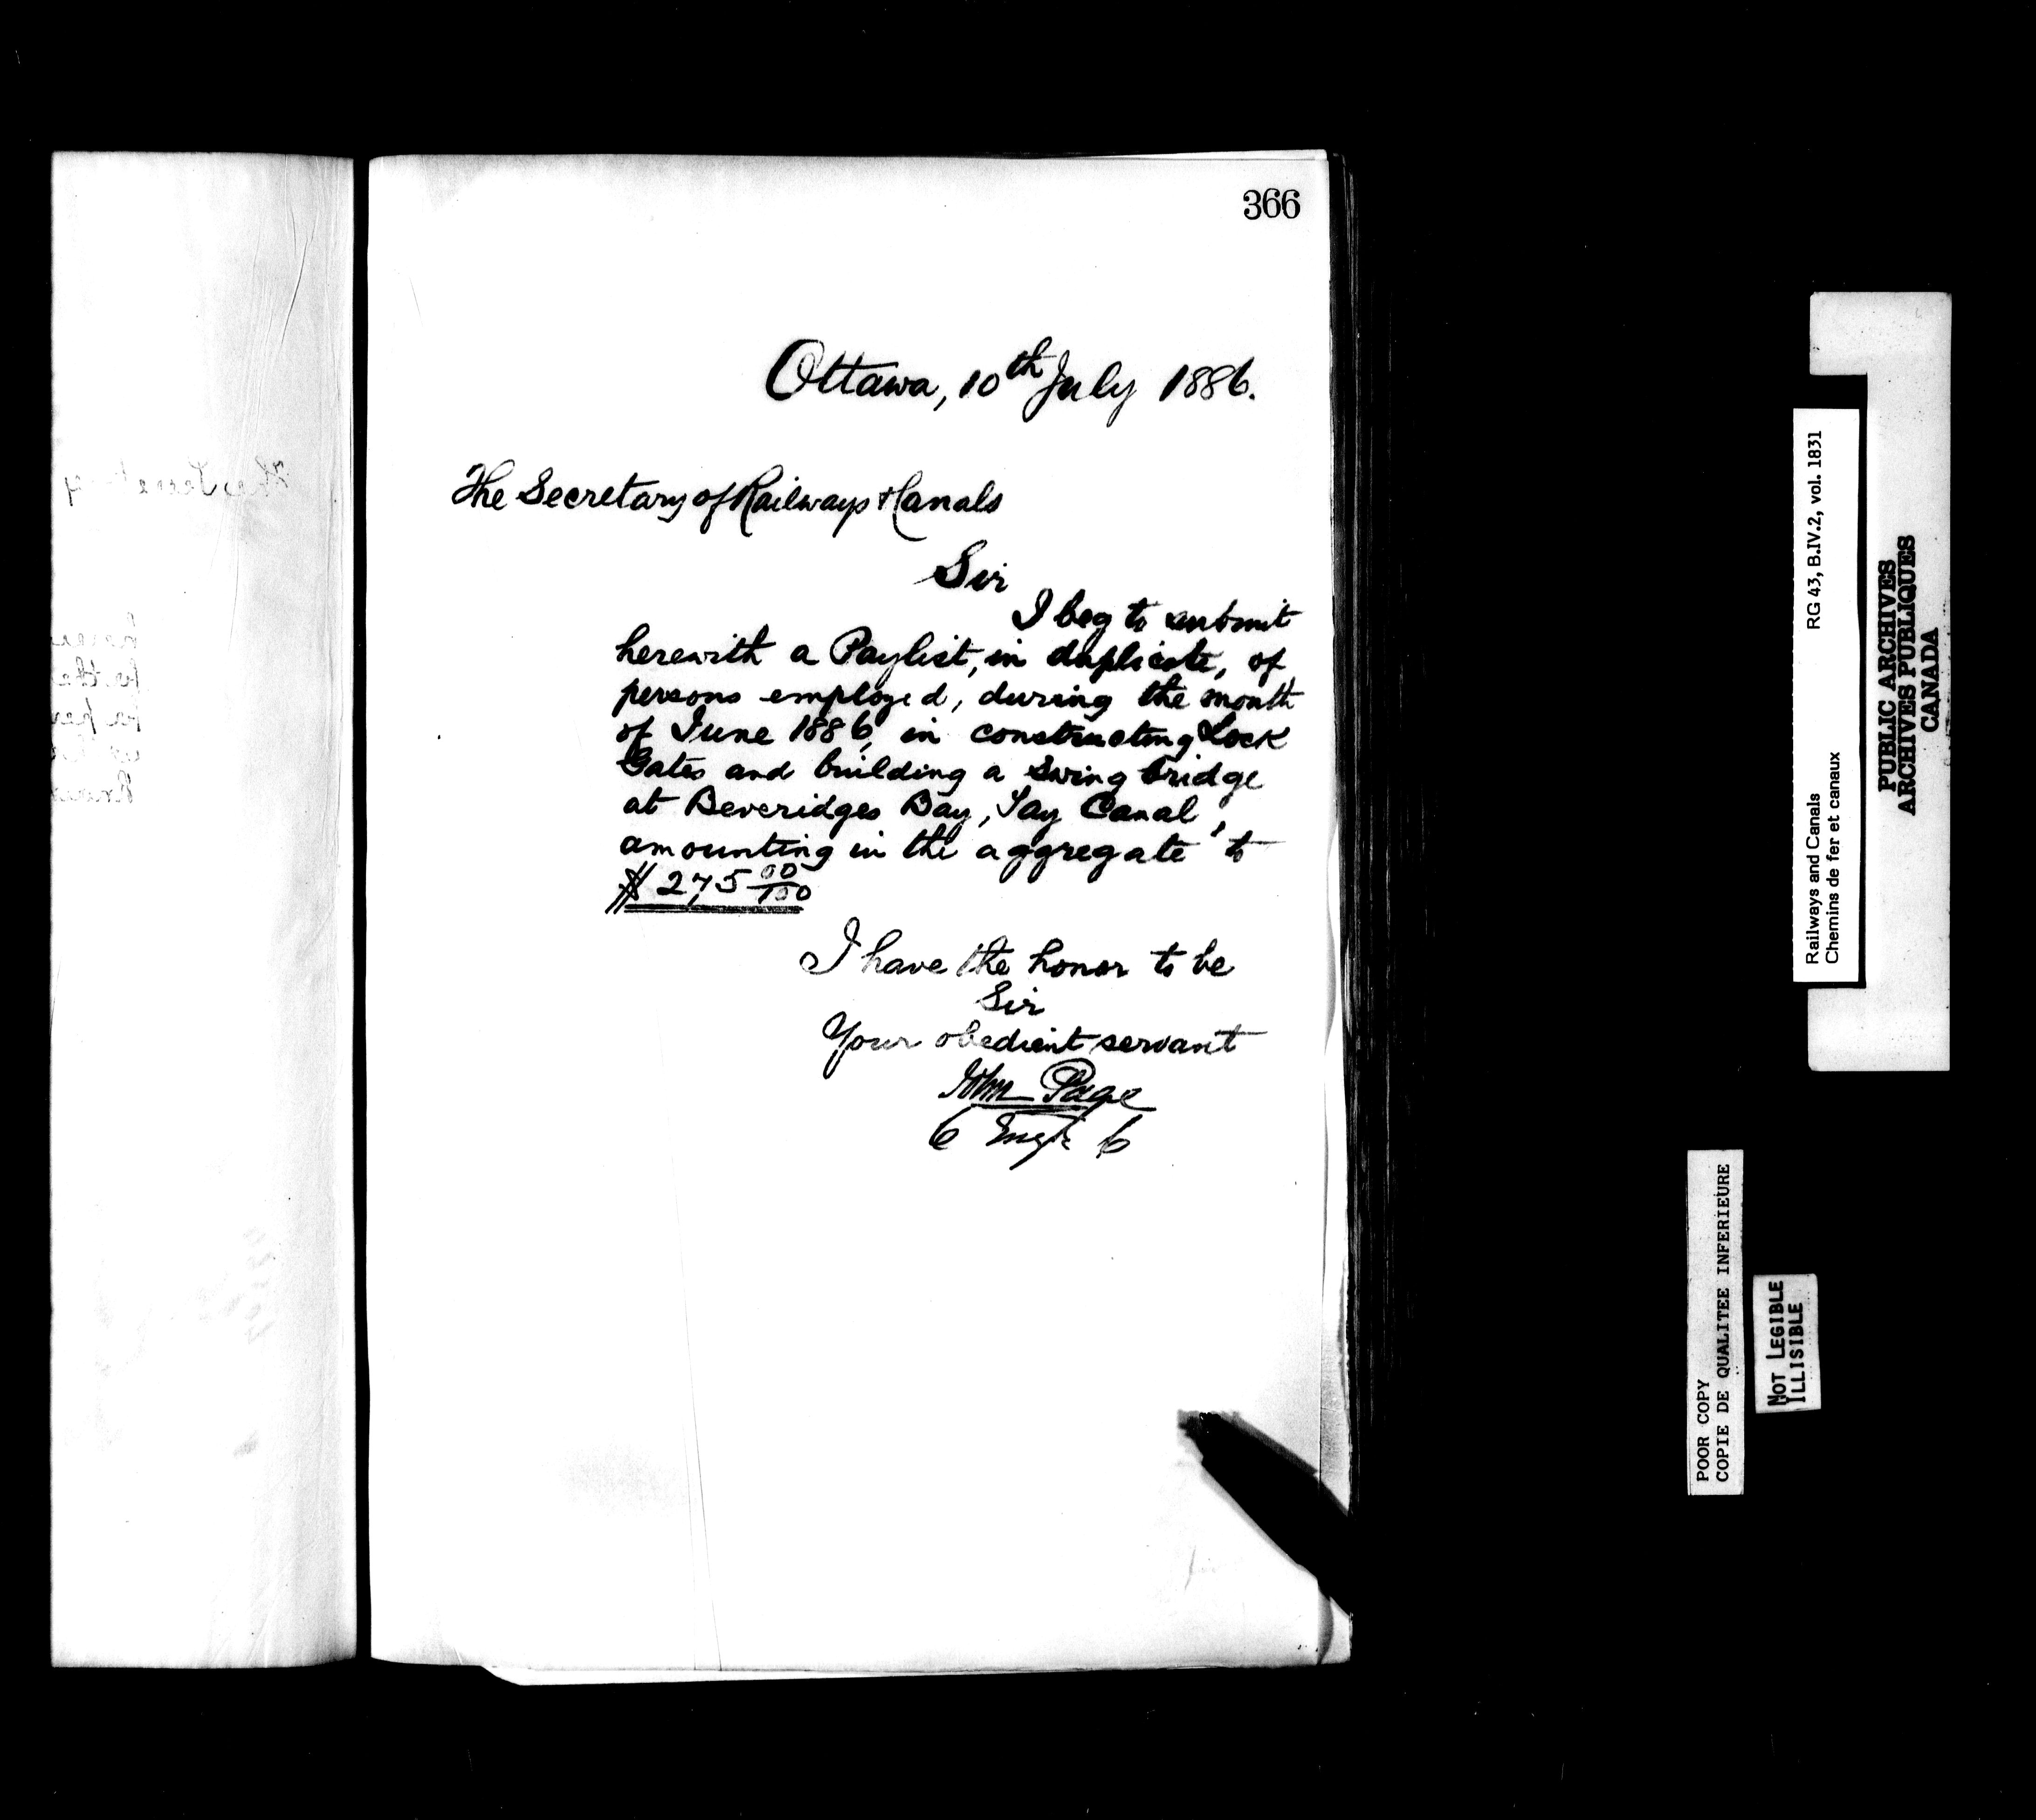 366
Ottawa, 10th July 1886.
The Secretary of Railways & Canals
Sir
I beg to submit
herewith a Paylist, in duplicate, of
persons employed, during the month
of June 1886, in constructing Lock
Gates and building a Swing bridge
at Beveridges Bay, Tay Canal,
amounting in the aggregate to
$275 00/100
I have the honor to be
Sir
Your obedient servant
John Page
C Engr C
Railways and Canals RG 43, B.IV.2, vol. 1831
Chemins de fer et canaux
PUBLIC ARCHIVES
ARCHIVES PUBLIQUES
CANADA
POOR COPY
COPIE DE QUALITEE INFERIEURE
NOT LEGIBLE
ILLISIBLE